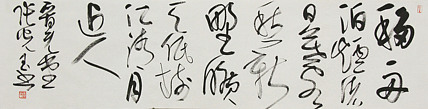 移舟
泊煙渚
日暮客
愁新
野曠
天低樹
江清月
近人